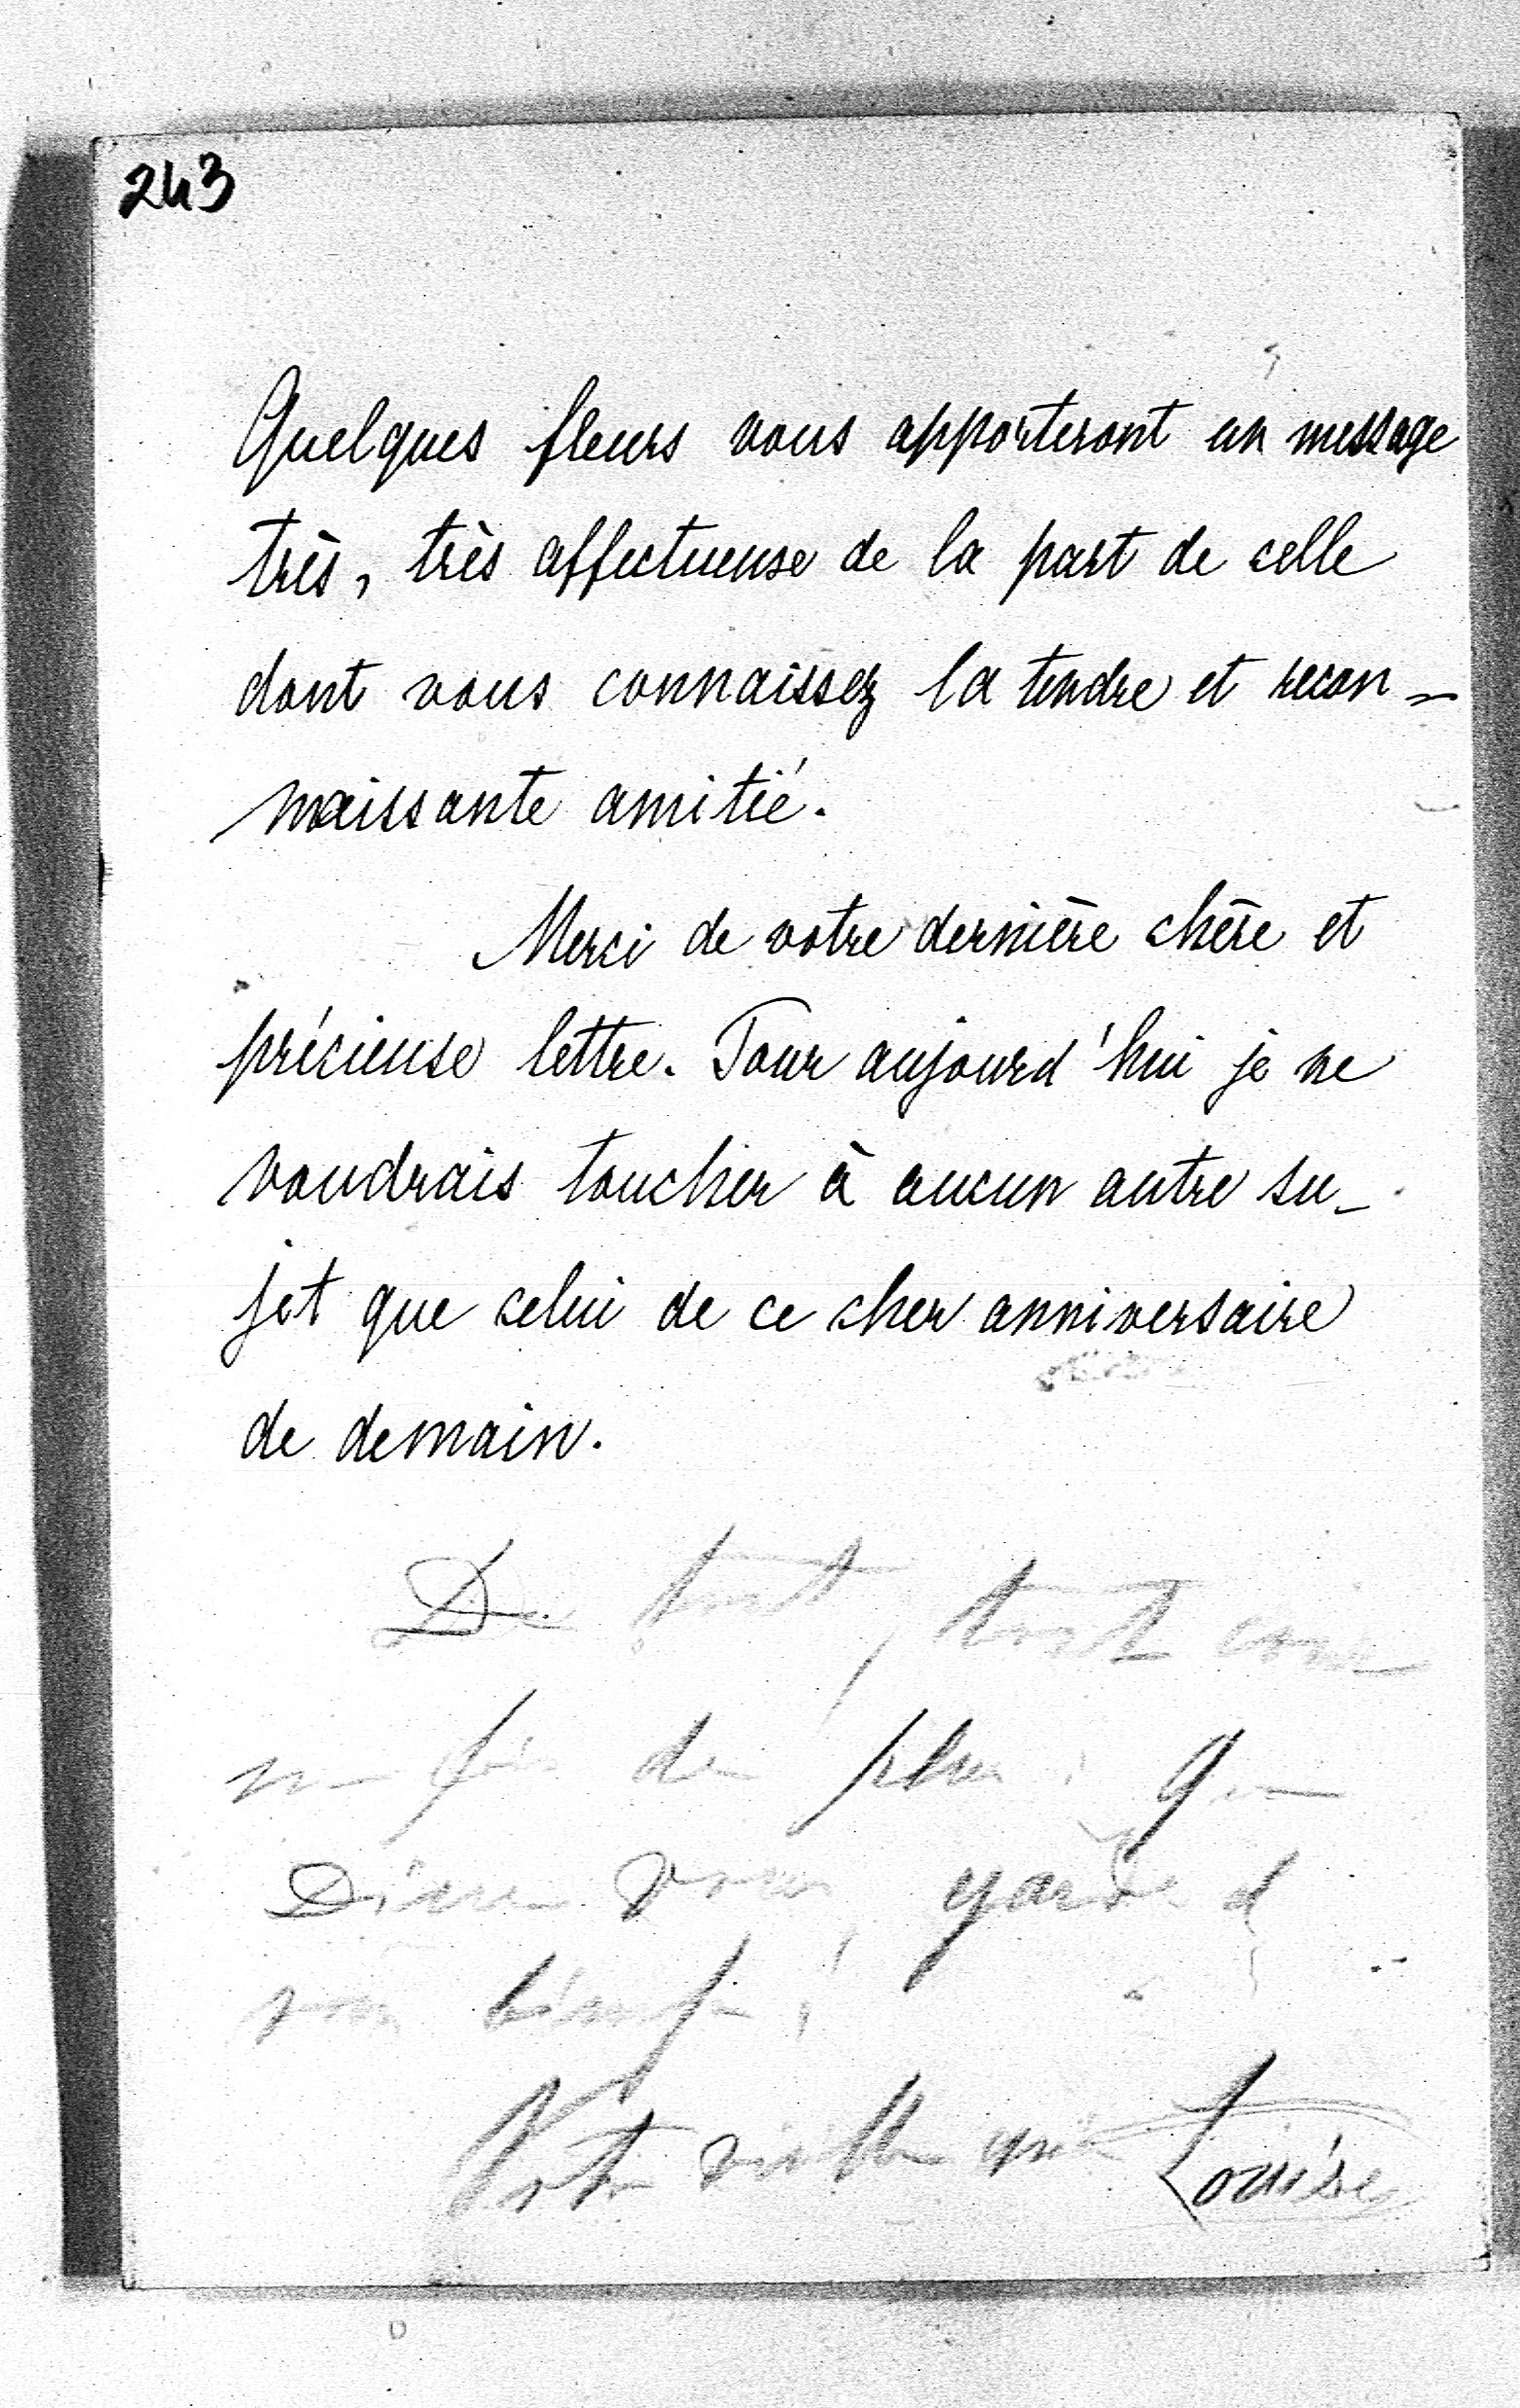 243
Quelques fleurs vous apporteront un message
très, très affectueuse de la part de celle
dont vous connaissez la tendre et recon=
naissante amitié.
Merci de votre dernière chère et
précieuse lettre. Pour aujourd'hui je ne
voudrais toucher à aucun autre su-
jet que celui de ce cher anniversaire
de demain.
De tout, tout
fois de plus que
Dieu vous garde
vous
Votre vieille amie Louise